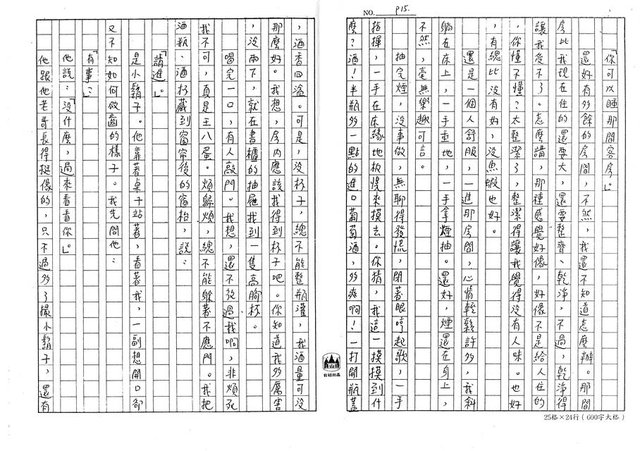 NO. P15.
「你可以睡那間客房」。
還好有多餘的房間,不然,我還不知道怎麼辦。那間
房比我現在住的還要大,還要整齊、乾淨,不過,乾淨得
讓我受不了。怎麼講,那種感覺好像,好像不是給人住的
,你懂不懂?太整潔了,整潔得讓我覺得沒有人味。也好
,有總比沒有好,沒魚蝦也好。
還是一個人舒服,一進那房間,心情輕鬆許多,我
躺在床上,一手垂地,一手拿煙抽。還好,煙還在身上,
不然,毫無樂趣可言。
抽完煙,沒事做,無聊得發慌,閉著眼哼起歌,一手
指揮,一手在床緣地板摸來摸去。你猜,我這一摸摸到什
麼?酒!半瓶多一點的進口葡萄酒,多爽啊!一打開瓶蓋
,酒香四溢。可是,沒杯子,總不能整瓶灌,我酒量可沒
那麼好。我想,房內應該找得到杯子吧。你知道我多厲害
,沒兩下,就在書櫃的抽屜找到一隻高腳杯。
喝完一口,有人敲門。我想,還不放過我啊,非煩死
我不可,真是王八蛋。煩歸煩,總不能躲著不應門。我把
酒瓶、酒杯藏到窗帘後的窗枱,說:
「請進」。
是小鬍子。他靠著桌子站著,看著我,一副想開口卻
又不知如何做的樣子。我先問他:
「有事?」
他說:「沒什麼,過來看看你」。
他跟他老哥長得挺像的,只不過多了撮小鬍子,還有
25格×24行(600字大格)